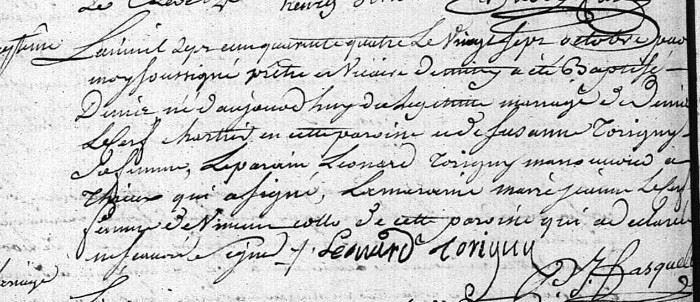 henry
Baptême L'an mil sept cent quarante quatre Le Vingt sept octobre par
moy soussigné prêtre et Vicaire de a été Baptisé
Denis né d'aujourd'huy du Legitime mariage de Denis
Leserf chartier en cette paroisse et de Susanne Torigny
sa femme, Le parain Leonard Torigny manouvrier a
qui a signé, La maraine marie jeanne Leserf
femme de de cette paroisse qui a declaré
ne scavoir signer /. Leonard Torigny
Pasquel
mariage